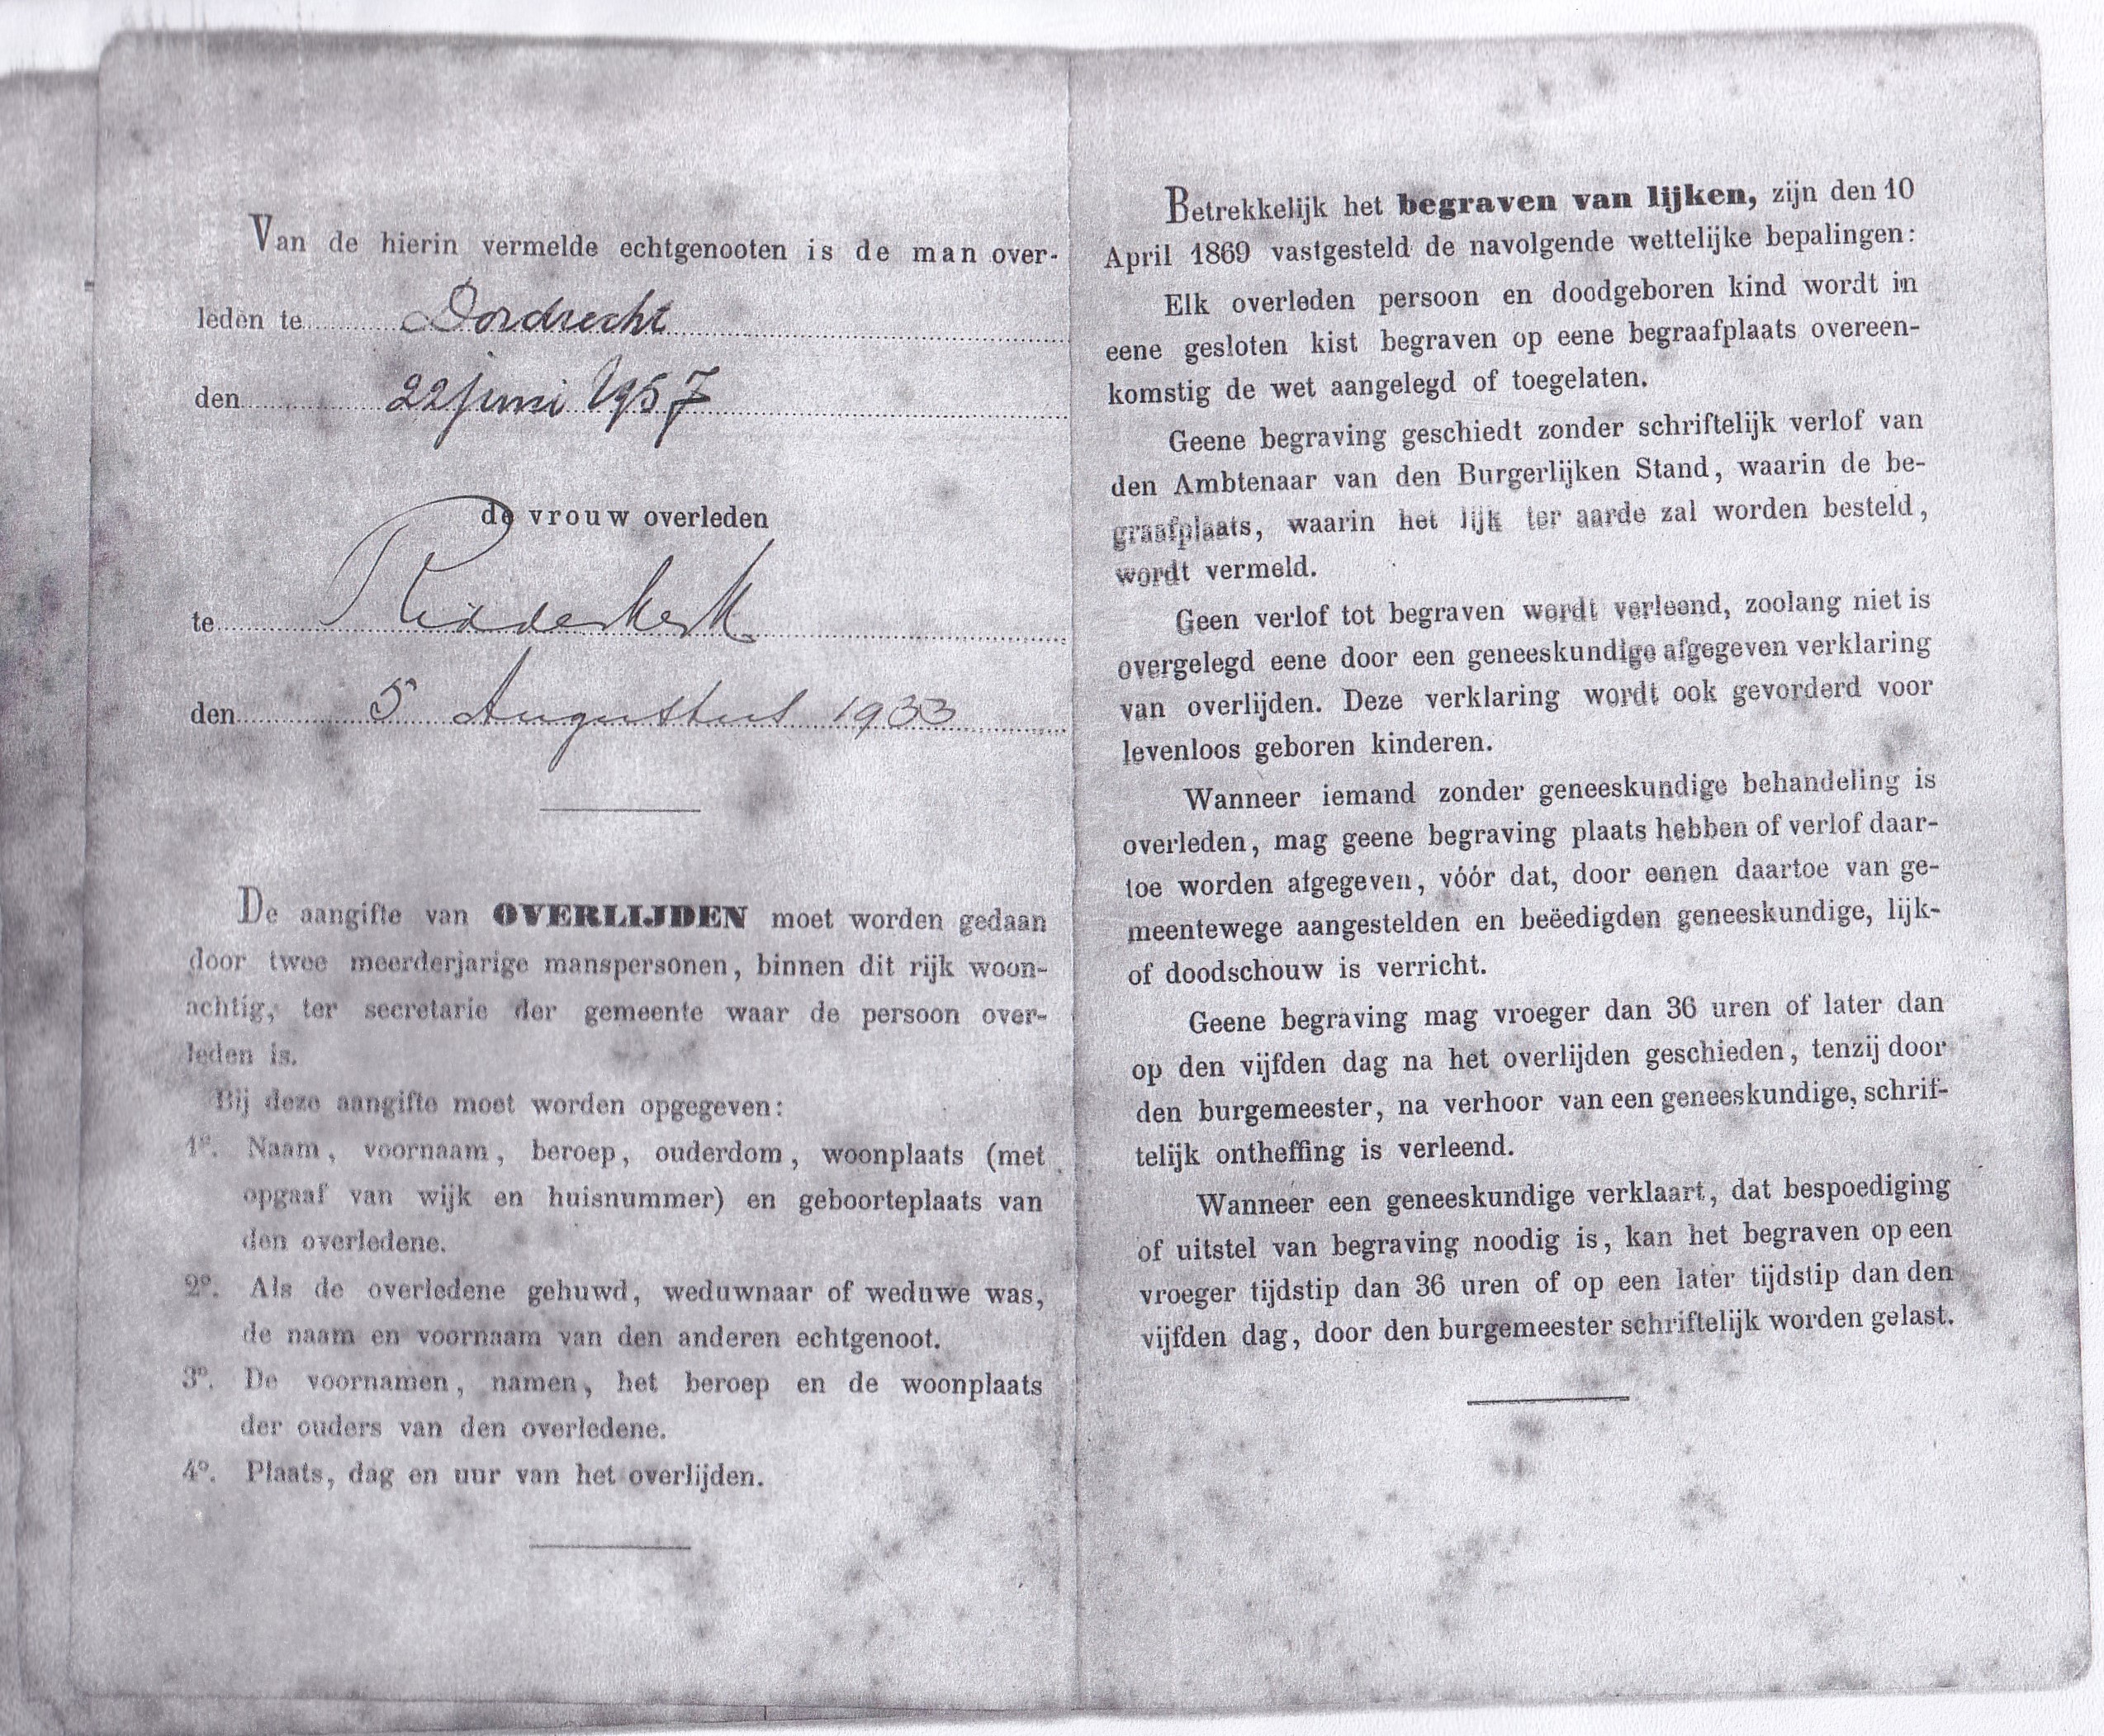 Van de hierin vermelde echtgenooten is de man over-
leden te Dordrecht
den 22 juni 1957
de vrouw overleden
te Ridderkerk
den 5 Augustus 1933
De aangifte van OVERLIJDEN moet worden gedaan
door twee meerderjarige manspersonen, binnen dit rijk woon-
achtig, ter secretarie der gemeente waar de persoon over-
leden is.
Bij deze aangifte moet worden opgegeven:
1º. Naam, voornaam, beroep, ouderdom, woonplaats (met
opgaaf van wijk en huisnummer) en geboorteplaats van
den overledene.
2º. Als de overledene gehuwd, weduwnaar of weduwe was,
de naam en voornaam van den anderen echtgenoot.
3º. De voornamen, namen, het beroep en de woonplaats
der ouders van den overledene.
4º. Plaats, dag en uur van het overlijden.
Betrekkelijk het begraven van lijken, zijn den 10
April 1869 vastgesteld de navolgende wettelijke bepalingen:
Elk overleden persoon en doodgeboren kind wordt in
eene gesloten kist begraven op eene begraafplaats overeen-
komstig de wet aangelegd of toegelaten.
Geene begraving geschiedt zonder schriftelijk verlof van
den Ambtenaar van den Burgerlijken Stand, waarin de be-
graafplaats, waarin het lijk ter aarde zal worden besteld,
wordt vermeld.
Geen verlof tot begraven wordt verleend, zoolang niet is
overgelegd eene door een geneeskundige afgegeven verklaring
van overlijden. Deze verklaring wordt ook gevorderd voor
levenloos geboren kinderen.
Wanneer iemand zonder geneeskundige behandeling is
overleden, mag geene begraving plaats hebben of verlof daar-
toe worden afgegeven, vóór dat, door eenen daartoe van ge-
meentewege aangestelden en beëedigden geneeskundige, lijk-
of doodschouw is verricht.
Geene begraving mag vroeger dan 36 uren of later dan
op den vijfden dag na het overlijden geschieden, tenzij door
den burgemeester, na verhoor van een geneeskundige, schrif-
telijk ontheffing is verleend.
Wanneer een geneeskundige verklaart, dat bespoediging
of uitstel van begraving noodig is, kan het begraven op een
vroeger tijdstip dan 36 uren of op een later tijdstip dan den
vijfden dag, door den burgemeester schriftelijk worden gelast.